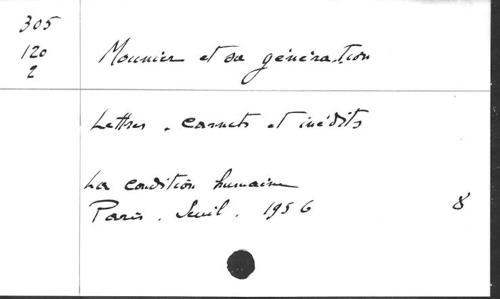 305
120
2
Mounier et sa génération
Lettres. carnets et inédits
La condition humaine
Paris. Seuil. 1956
8